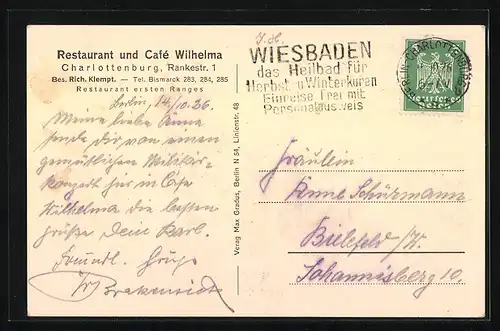 Restaurant und Café Wilhelma
Charlottenburg, Rankestr. 1
Bes. Rich. Klempt. — Tel. Bismarck 283, 284, 285
Restaurant ersten Ranges
Berlin, 14/10.26.
Meine liebe Änne
sende dir von einem
gemütlichen Militär-
konzert hier in Cafe
Wilhelma die besten
Grüße Dein Karl.
Freundl. Grüße
Verlag Max Gradus, Berlin N 54, Linienstr. 48
WIESBADEN
das Heilbad für
Herbst u. Winterkuren
Einreise frei mit
Personalausweis
BERLIN-CHARLOTTENBURG
Deutsches
Reich
Fräulein
Änne Schürmann
Bielefeld /W.
Johannisberg 10.